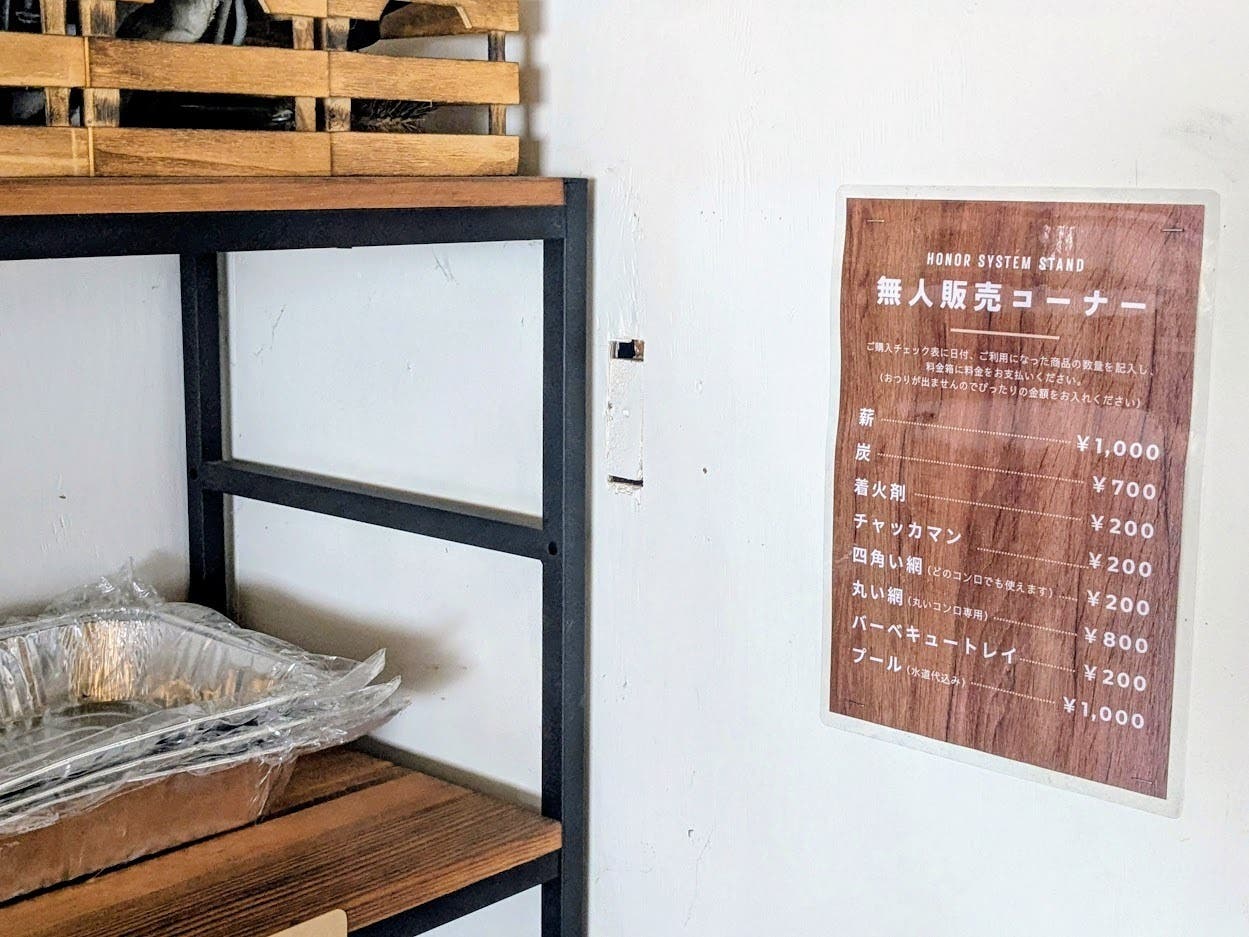 HONOR SYSTEM STAND
無人販売コーナー
ご購入チェック表に日付、ご利用になった商品の数量を記入し、
料金箱に料金をお支払いください。
(おつりが出ませんのでぴったりの金額をお入れください)
薪 ¥1,000
炭 ¥700
着火剤 ¥200
チャッカマン ¥200
四角い網 (どのコンロでも使えます) ¥200
丸い網 (丸いコンロ専用) ¥800
バーベキュートレイ ¥200
プール (水道代込み) ¥1,000